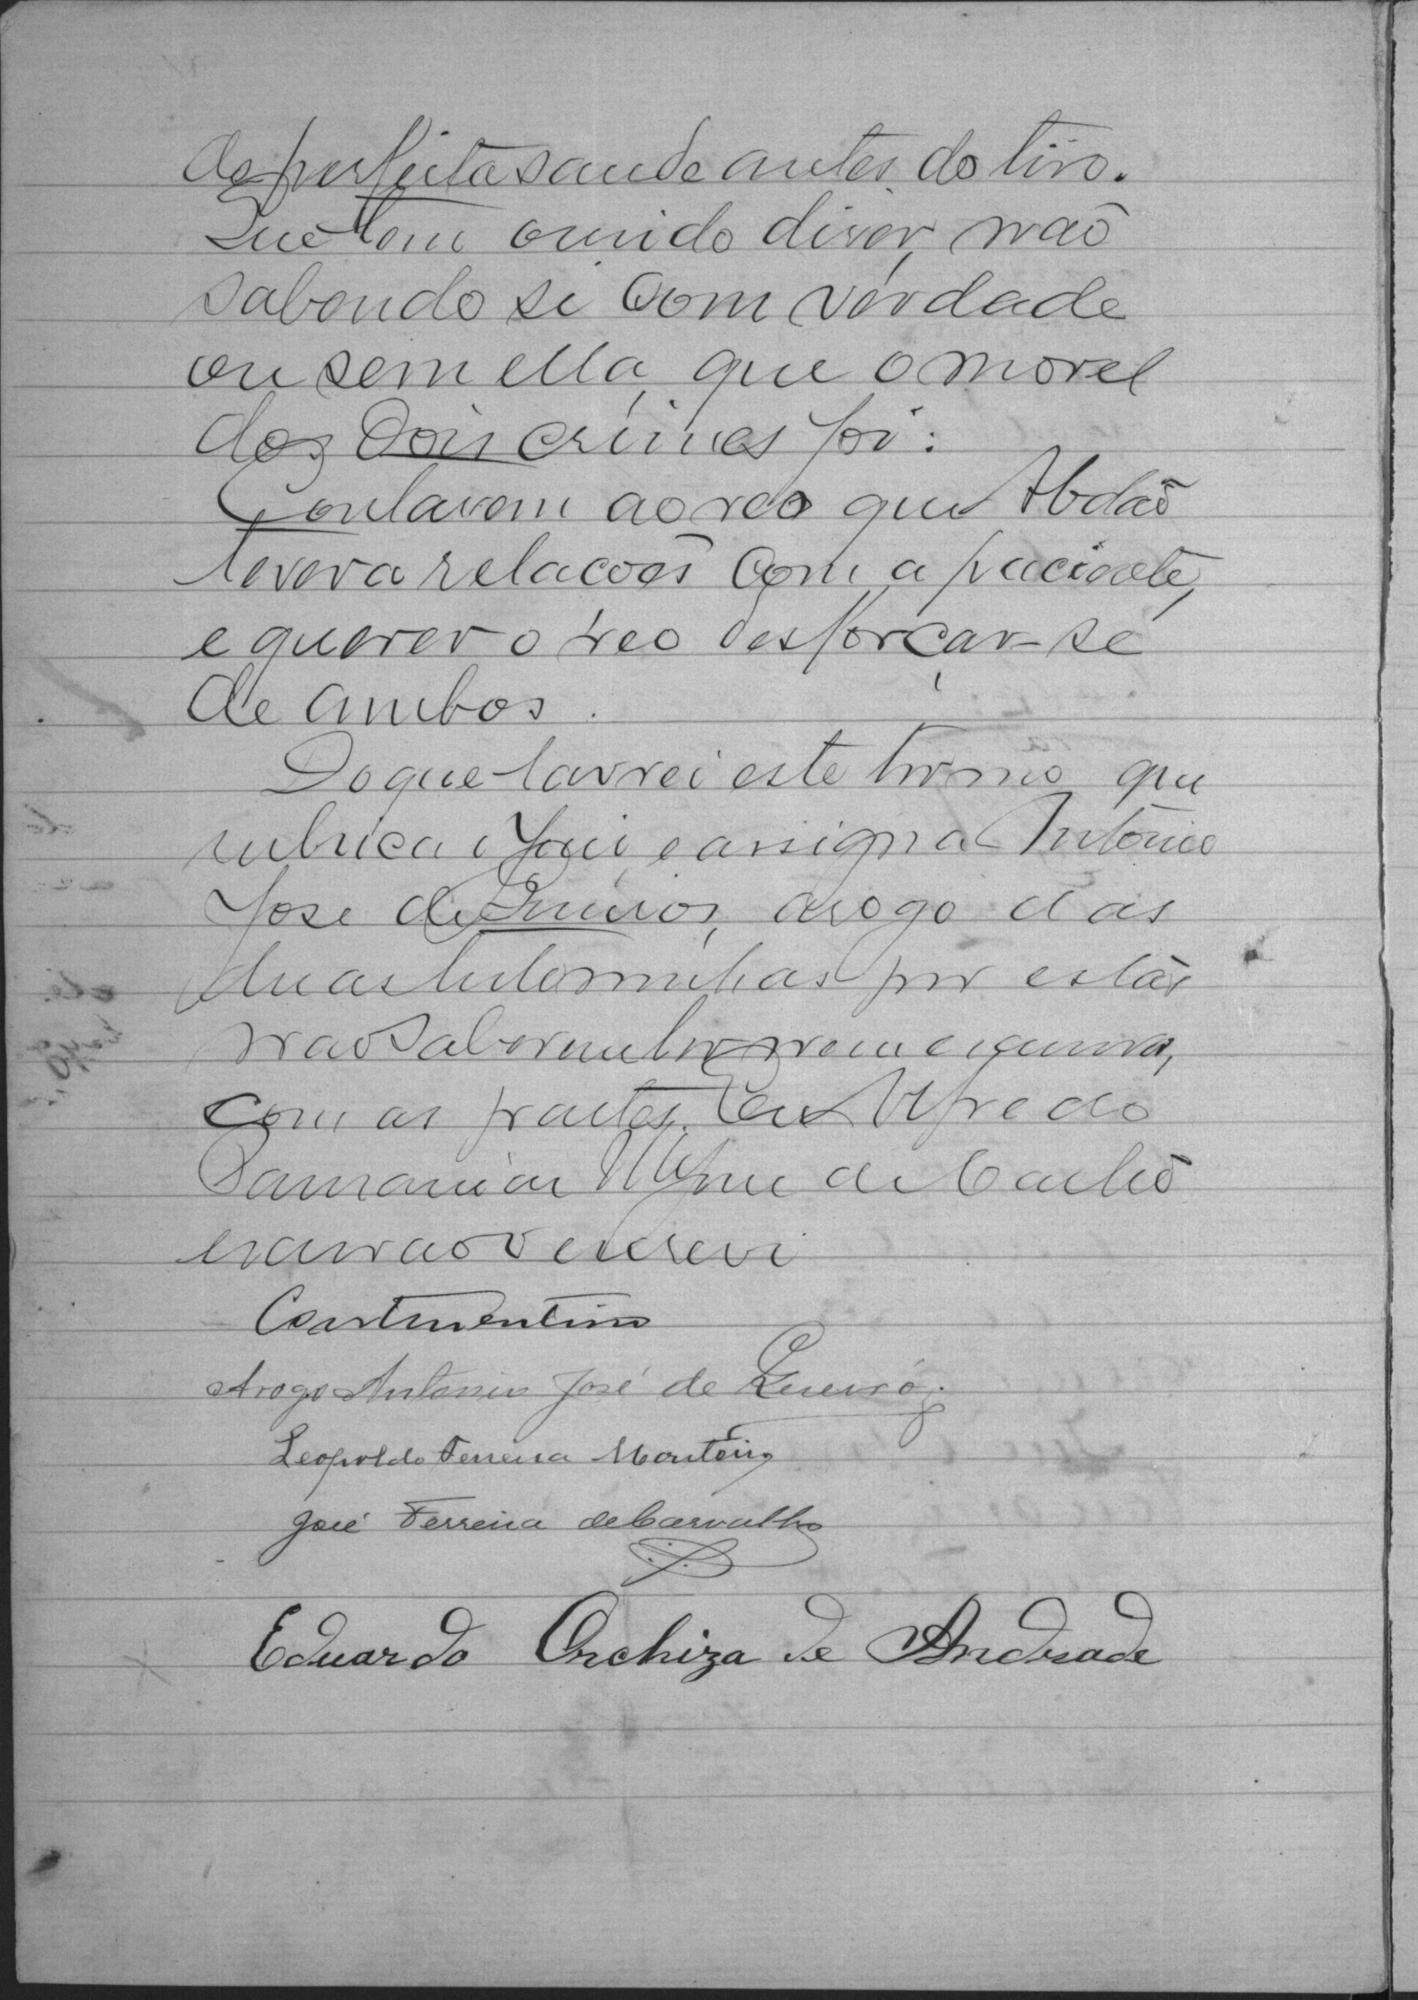 de perfeita saude antes do tiro.
Que tem ouvido diser, não
sabendo si com verdade
ou sem ella, que o movel
dos dois crimes foi:
Contarem ao reo que Abdão
tevera relacoẽs com a paciente,
e querer o reo desforçar-se
de ambos.
Do que lavrei este termo que
rubrica o Juis e assigna Antonio
José de Queiros, arogo das
duas testeminhas por estas
não saberem ler nem escrever,
com as partes. Eu Alfredo
de Castro
escrivão o escrevi
Arogo Antonio José de Queiróz.
Leopoldo Ferreira Monteiro
José Ferreira de Carvalho
Eduardo Orchiza de Andrade